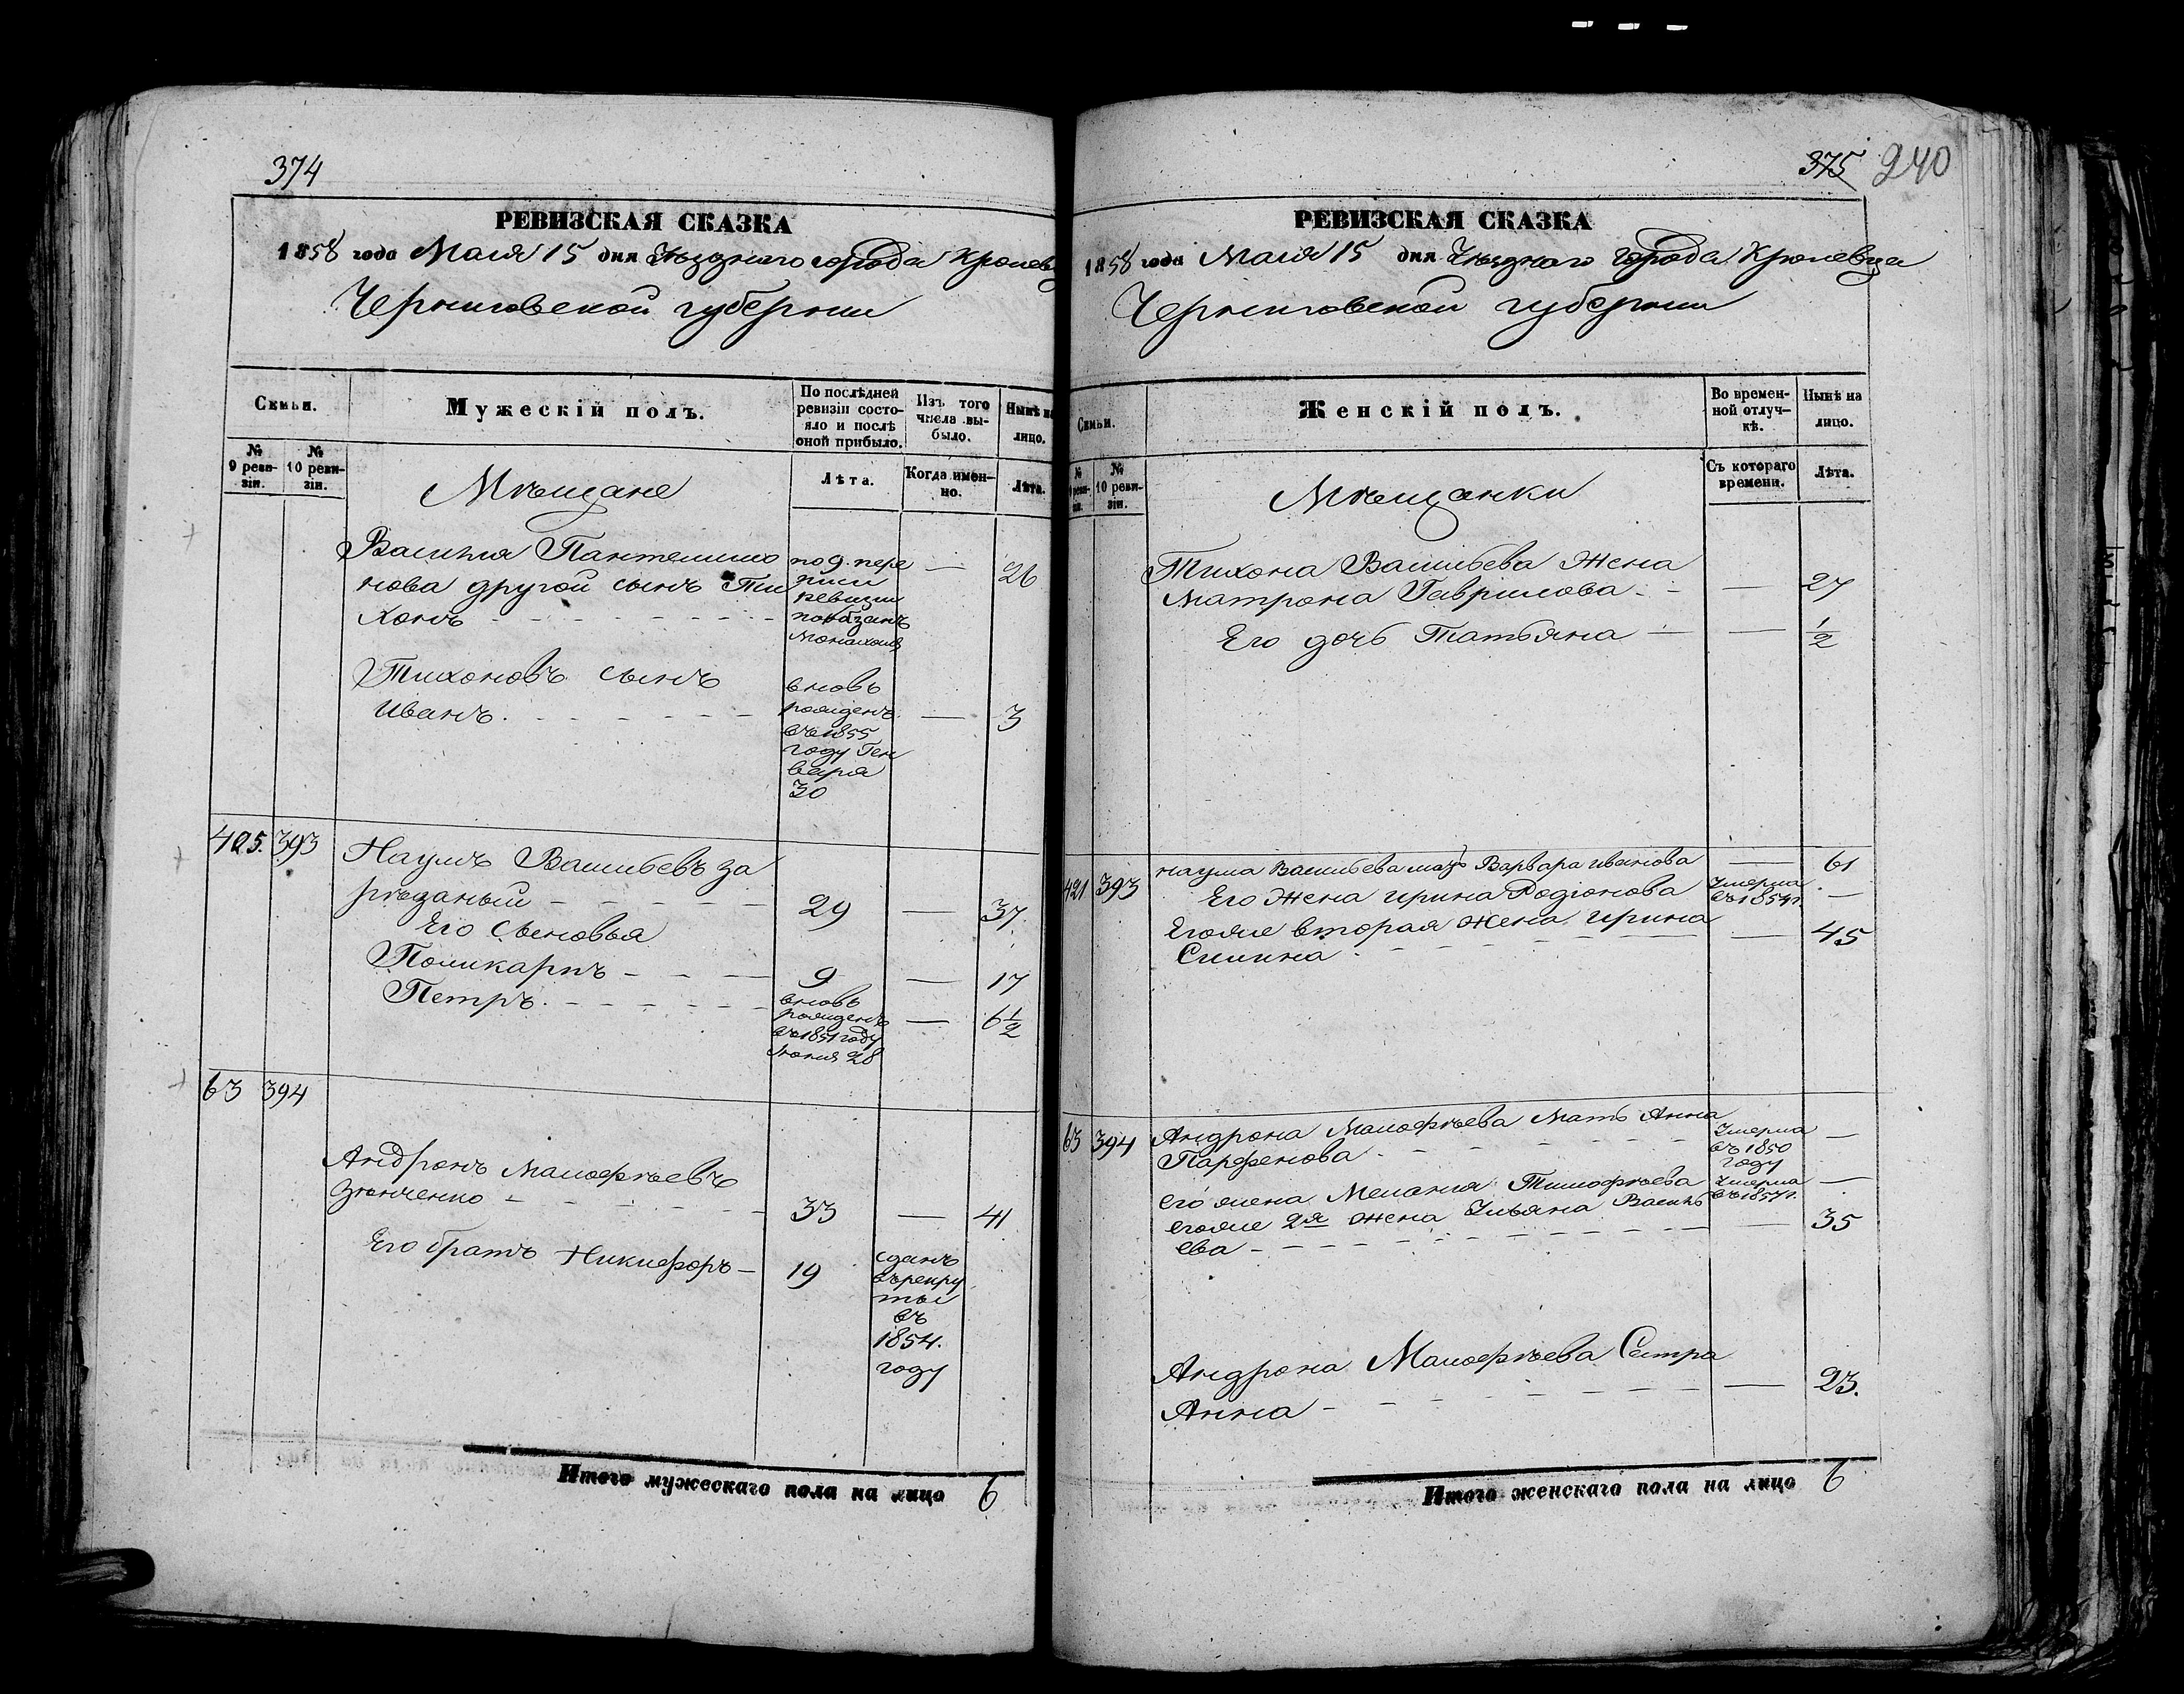 374
РЕВИЗСКАЯ СКАЗКА
1858 года Маия 15 дня Уѣзднаго города Кролевц
Черниговской губернии
Семьи.
Мужескій полъ.
По послѣдней ревизіи состояло и послѣ оной прибыло.
Изъ того числа выбыло.
Нынѣ на лицо.
№ 9 ревизіи.
№ 10 ревизіи.
Лѣта.
Когда именно.
Лѣта.
Мѣщане
Василия Пантелимо
нова другой сынъ Ти
хонъ
по 9. пере
писи
ревизии
показанъ
—
26
Тихоновъ сынъ
Иванъ.
вновь
рожденъ
въ 1855
году Ген
варя
30
—
3
405. 393
Наумъ Васильевъ за
рѣзаный — 29 — 37.
Его Сыновья
Поликарпъ — 9 — 17
Петръ.
вновь
рожденъ
въ 1851 году
Июния 28
— 6 1/2
63 394
Андронъ Малофѣевъ
Зѣнченко — 33 — 41
Его братъ Никифоръ — 19
сданъ
въ рекру
ты
въ
1854.
году
Итого мужескаго пола на лицо 6
375 240
РЕВИЗСКАЯ СКАЗКА
1858 года Маия 15 дня Уѣзднаго города Кролевца
Черниговской губернии
Семьи.
Женскій полъ.
Во временной отлучкѣ.
Нынѣ на лицо.
№ 9 ревизіи.
№ 10 ревизіи.
Съ котораго времени.
Лѣта.
Мѣщанки
Тихона Васильева Жена
Матрона Гаврилова — 27
Его дочь Татьяна — 1/2
421 393
Наума Васильева мать Варвара Иванова — 61
Его Жена Ирина Родионова Умерла въ 1854 г. —
Егоже вторая жена Ирина
Силина — 45
63 394
Андрона Малофѣева Мать Анна
Парфенова
Умерла
въ 1850
году
—
Его жена Мелания Тимофѣева Умерла въ 1857 г. —
Егоже 2я жена Ульяна Василь
ева — 35
Андрона Малофѣева Сестра
Анна — 23.
Итого женскаго пола на лицо 6